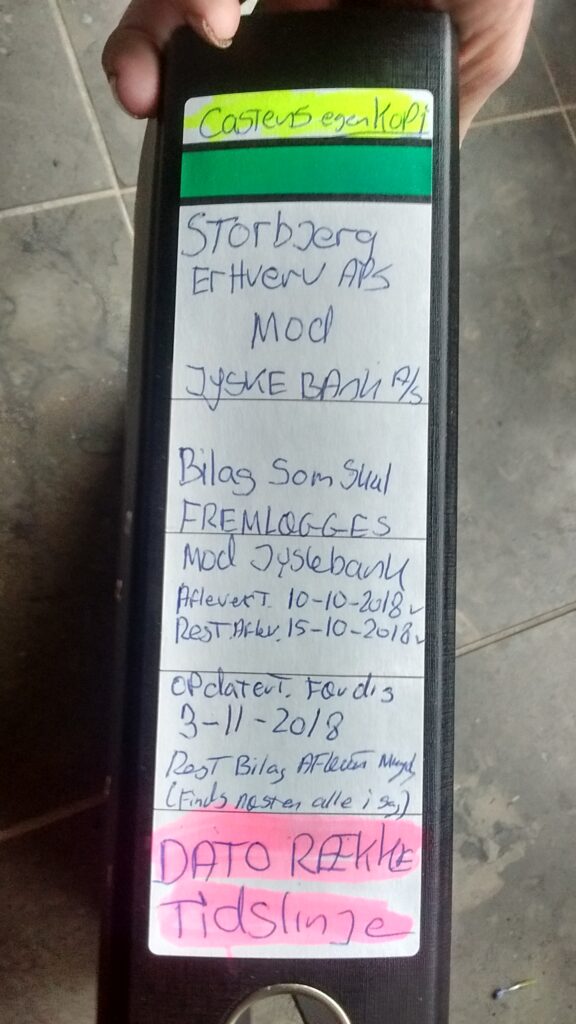 Castens egen Kopi
STorbJerg
ErHverv APS
Mod
JYSKE BAnk A/S
Bilag Som Skal
FREMLÆGGES
Mod Jyskebank
AfleverT. 10-10-2018
Rest.Aflev. 15-10-2018
OPdaterT. Færdig
3-11-2018
Rest Bilag Aflever
(Finds næsten alle i sag)
DATO RÆKKE
Tidslinje